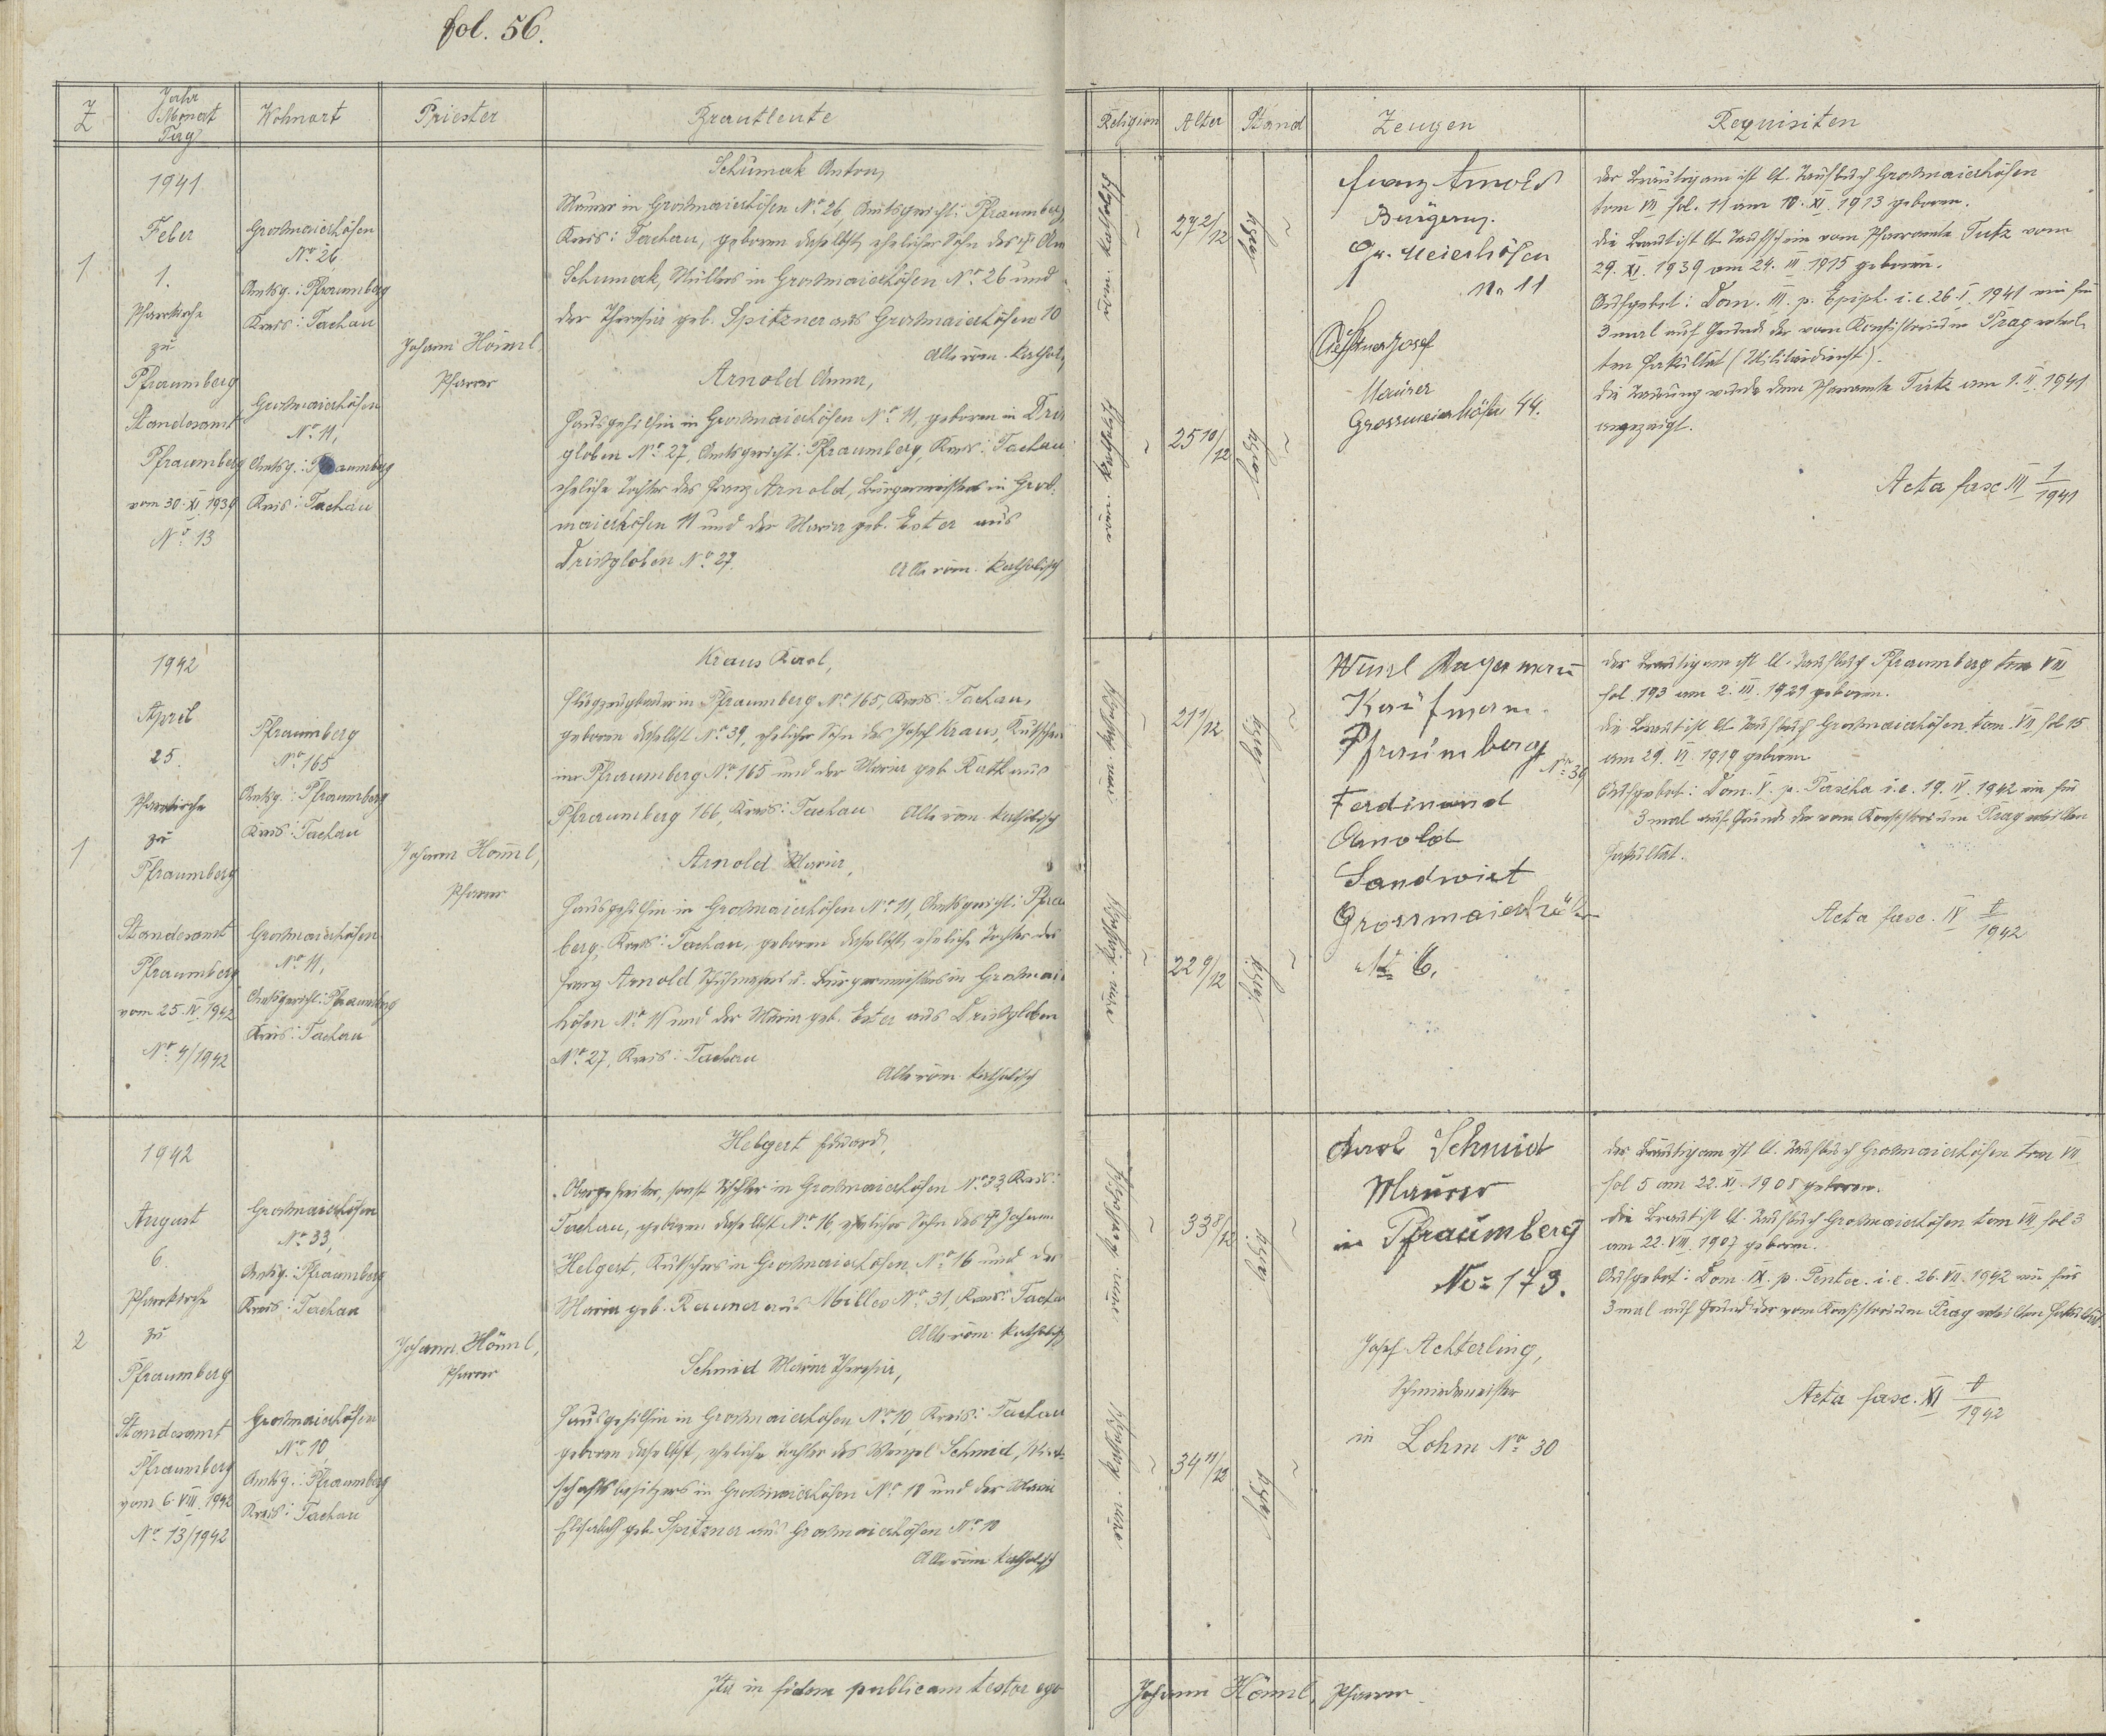 fol. 56.
Z
Jahr
Monat
Tag
Wohnort
Priester
Brautleute
Religion
Alter
Stand
Zeugen
Requisiten
1
1941
Feber
1.
Pfarrkirche
zu
Pfraumberg
Standesamt
Pfraumberg
vom 30. XI. 1939
No. 13
Großmaierhöfen
No. 26
Amtsg.: Pfraumberg
Kreis: Tachau
Großmaierhöfen
No. 11,
Amtsg.: Pfraumberg
Kreis: Tachau
Johann Hömml,
Pfarrer
Schumak Anton,
Maurer in Großmaierhöfen No. 26, Amtsgericht: Pfraumberg,
Kreis: Tachau, geboren daselbst, ehelicher Sohn des †
Schumak, Müllers in Großmaierhöfen No. 26 und
der Theresia geb. Spitzner aus Großmaierhöfen 10
Alle röm. kathol.
Arnold Anna,
Hausgehilfin in Großmaierhöfen No. 11, geboren in
globen No. 27, Amtsgericht: Pfraumberg, Kreis: Tachau
eheliche Tochter des Franz Arnold, Bürgermeisters in Groß-
maierhöfen 11 und der Maria geb. Exter aus
Drißgloben No. 27.
Alle röm. katholisch
röm. katholisch
röm. katholisch
27 2/12
25 10/12
ledig
ledig
Franz Arnold
Bürgerm.
Gr. Meierhöfen
No 11
Josef
Maurer
Grossmeierhöfen 44.
Der Bräutigam ist lt. Taufbuch Großmaierhöfen
tom VII fol. 11 am 10. XI. 1913 geboren.
Die Braut ist lt. Taufschein vom Pfarramte Tutz vom
29. XI. 1939 am 24. III. 1915 geboren.
Aufgebot: Dom. III. p. Epiph. i. e. 26. I. 1941 ein für
3 mal auf Grund der vom Konsistorium Prag erteil-
ten Fakultät (Militärdienst).
Die Trauung wurde dem Pfarramte Tutz am 1. II. 1941
angezeigt.
Acta fasc III 1/1941
1
1942
April
25.
Pfarrkirche
zu
Pfraumberg
Standesamt
Pfraumberg
vom 25. IV. 1942
No. 4/1942
Pfraumberg
No. 165
Amtsg.: Pfraumberg
Kreis: Tachau
Großmaierhöfen
No. 11,
Amtsgericht: Pfraumberg
Kreis: Tachau
Johann Hömml,
Pfarrer
Kraus Karl,
Flugzeugbauer in Pfraumberg No. 165, Kreis: Tachau,
geboren daselbst No. 39, ehelicher Sohn des Josef Kraus,
in Pfraumberg No. 165 und der Maria geb. Rath aus
Pfraumberg 166, Kreis: Tachau Alle röm. katholisch
Arnold Maria,
Hausgehilfin in Großmaierhöfen No. 11, Amtsgericht: Pfra
berg, Kreis: Tachau, geboren daselbst, eheliche Tochter des
Franz Arnold Schuhmachers u. Bürgermeisters in Großmai
höfen No. 11 und der Maria geb. Exter aus Drißgloben
No. 27, Kreis: Tachau
Alle röm. katholisch
röm. katholisch
röm. katholisch
21 1/12
22 9/12
ledig
ledig
Wenzl
Kaufmann
Pfraumberg
No. 39
Ferdinand
Arnold
Landwirt
Grossmaierhöfen
No 6.
Der Bräutigam ist lt. Taufbuch Pfraumberg tom VIII
fol. 193 am 2. III. 1921 geboren.
Die Braut ist lt. Taufbuch Großmaierhöfen tom. VII fol 15
am 29. VI. 1919 geboren
Aufgebot: Dom. V. p. Pascha i. e. 19. IV. 1942 ein für
3 mal auf Grund der vom Konsistorium Prag erteilten
Fakultät.
Acta fasc. IV 1/1942
2
1942
August
6.
Pfarrkirche
zu
Pfraumberg
Standesamt
Pfraumberg
vom 6. VIII. 1942
No. 13/1942
Großmaierhöfen
No. 33,
Amtsg.: Pfraumberg
Kreis: Tachau
Großmaierhöfen
No. 10,
Amtsg.: Pfraumberg
Kreis: Tachau
Johann Hömml,
Pfarrer
Helgert Eduard,
Obergefreiter, sonst Tischler in Großmaierhöfen No. 33, Kreis:
Tachau, geboren daselbst No. 16, ehelicher Sohn des † Johann
Helgert, Kutschers in Großmaierhöfen No. 16 und der
Maria geb. Renner aus Milles No. 31, Kreis: Tacha
Alle röm. katholisch
Schmid Maria Theresia,
Hausgehilfin in Großmaierhöfen No. 10, Kreis: Tachau
geboren daselbst, eheliche Tochter des Wenzel Schmid, Wirt-
schaftsbesitzers in Großmaierhöfen No. 10 und der Maria
Elisabeth geb. Spitzner aus Großmaierhöfen No. 10
Alle röm. katholisch
röm. katholisch
röm. katholisch
33 8/12
34 11/12
ledig
ledig
Karl Schmid
Maurer
in Pfraumberg
No: 173.
Josef Achterling,
Schmiedemeister
in Lohm No. 30
Der Bräutigam ist lt. Taufbuch Großmaierhöfen tom VII
fol 5 am 22. XI. 1908 geboren.
Die Braut ist lt. Taufbuch Großmaierhöfen tom VII fol 3
am 22. VIII. 1907 geboren.
Aufgebot: Dom. IX. p. Pentec. i. e. 26. VII. 1942 ein für
3 mal auf Grund der vom Konsistorium Prag erteilten Fakultät.
Acta fasc. XI 1/1942
Ita in fidem publicam testor ego
Johann Hömml, Pfarrer.